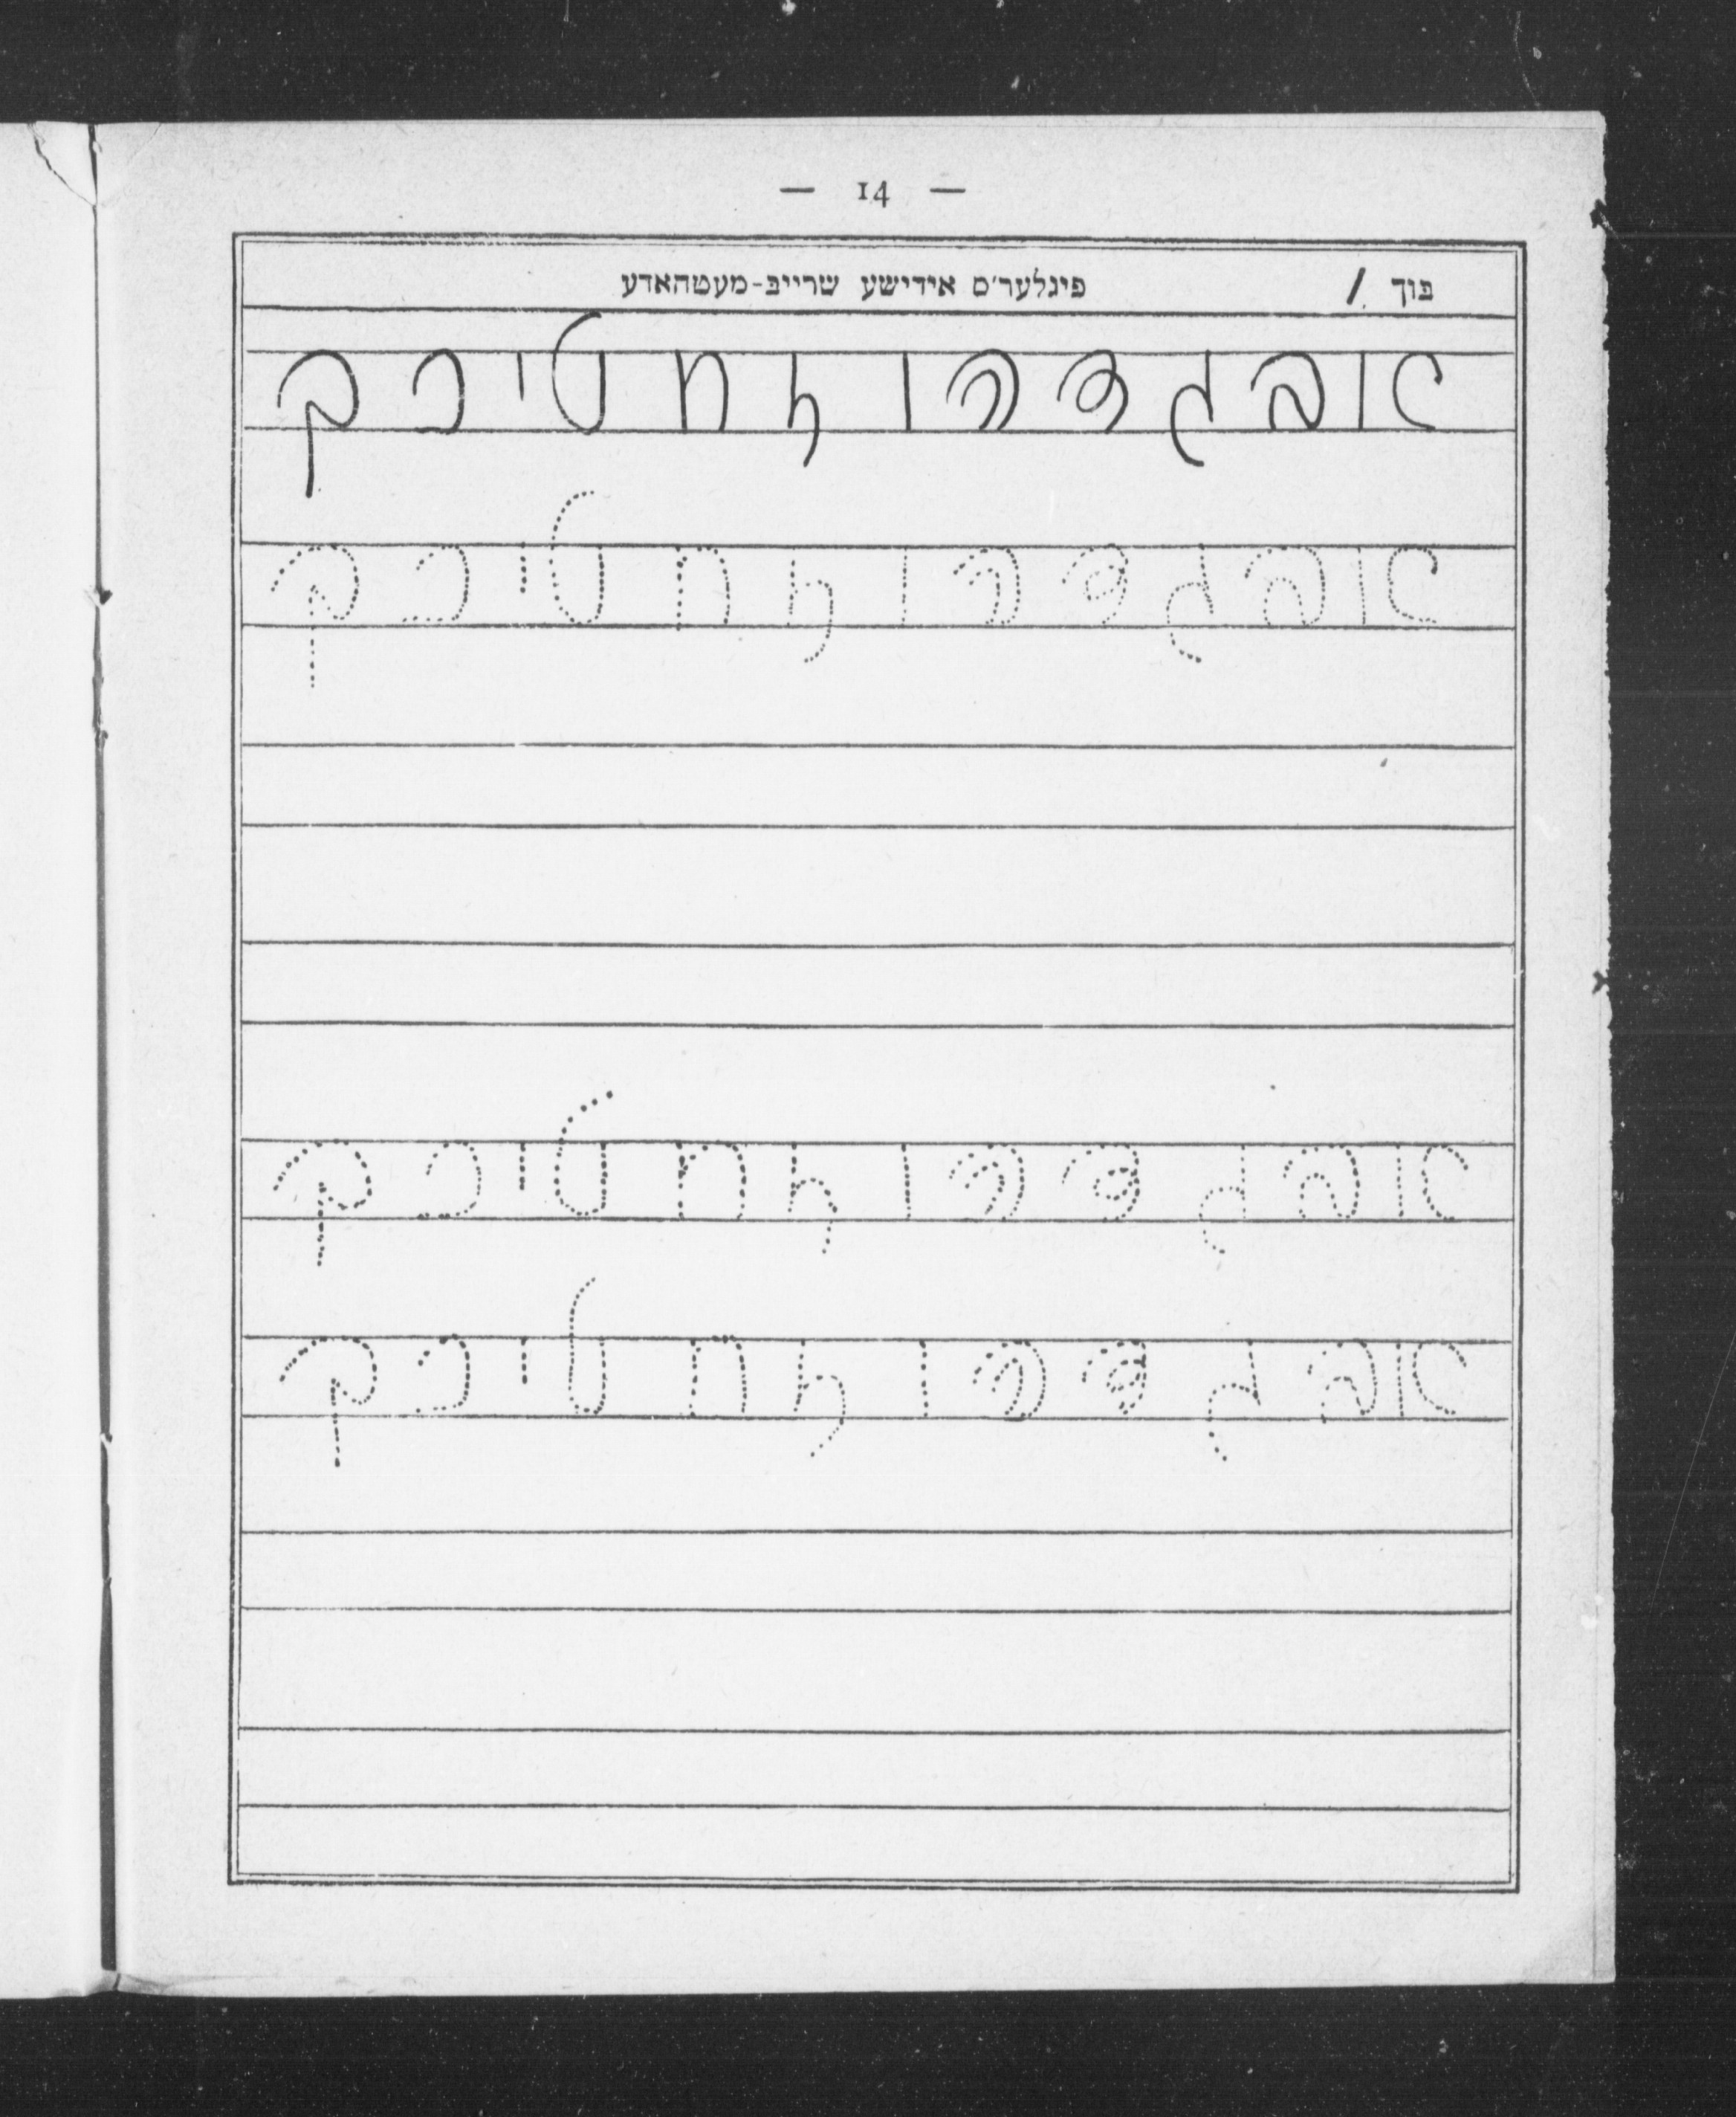 — 14 —
בוך 1 פיגלער׳ס אידישע שרייב-מעטהאדע
א ב ג ד ה ו ז ח ט י כ ך
א ב ג ד ה ו ז ח ט י כ ך
א ב ג ד ה ו ז ח ט י כ ך
א ב ג ד ה ו ז ח ט י כ ך